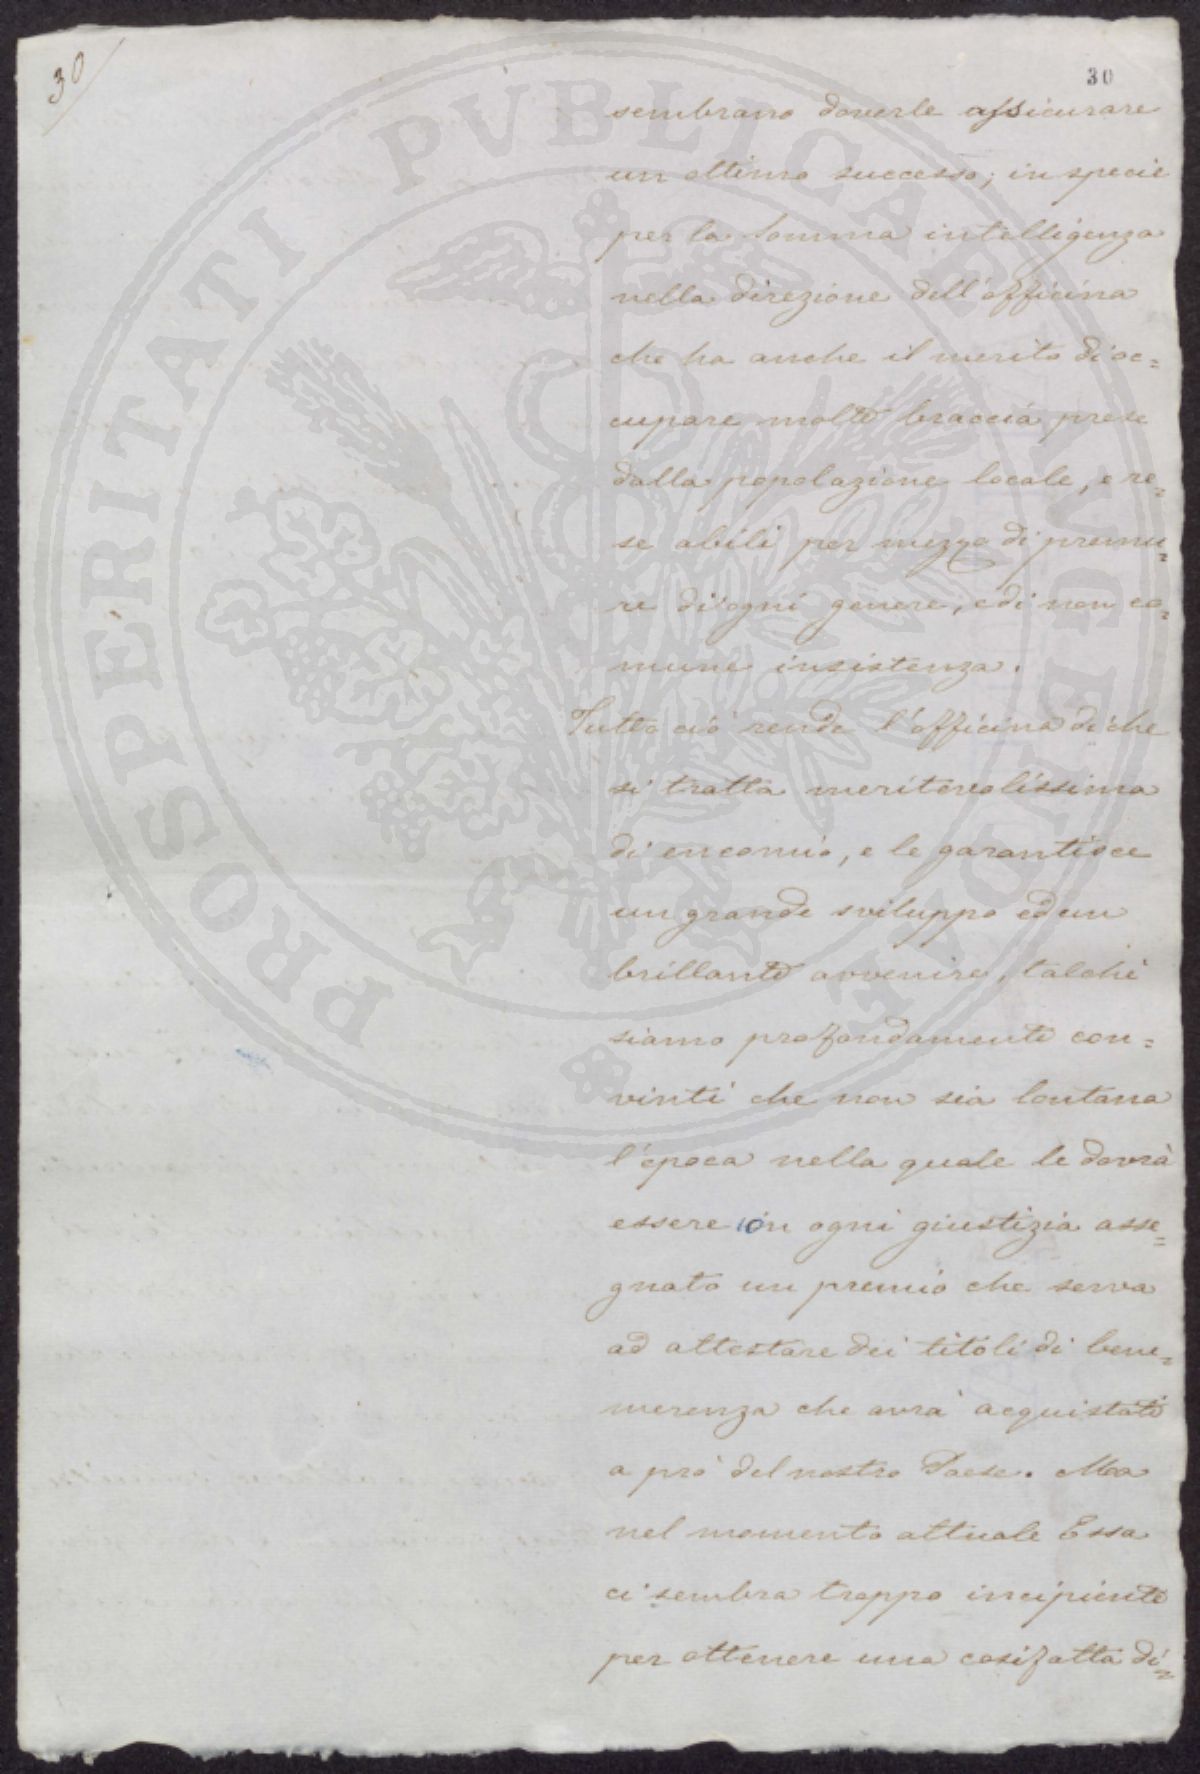 30
30
sembrano doverle assicurare
un ottimo successo; in specie
per la somma intelligenza
nella direzione dell'officina
che ha anche il merito di oc=
cupare molte braccia prese
dalla popolazione locale, e re=
se abili per mezzo di premu=
re di ogni genere, e di non co=
mune insistenza.
Tutto ciò rende l'officina di che
si tratta meritevolissima
di encomio, e le garantisce
un grande sviluppo ed un
brillante avvenire, talchè
siamo profondamente con=
vinti che non sia lontana
l'epoca nella quale le dovrà
essere in ogni giustizia asse=
gnato un premio che serva
ad attestare dei titoli di bene=
merenza che avrà acquistati
a prò del nostro Paese. Ma
nel momento attuale Essa
ci sembra troppo incipiente
per ottenere una cosifatta di=
PROSPERITATI PVBLICAE AVGENDAE